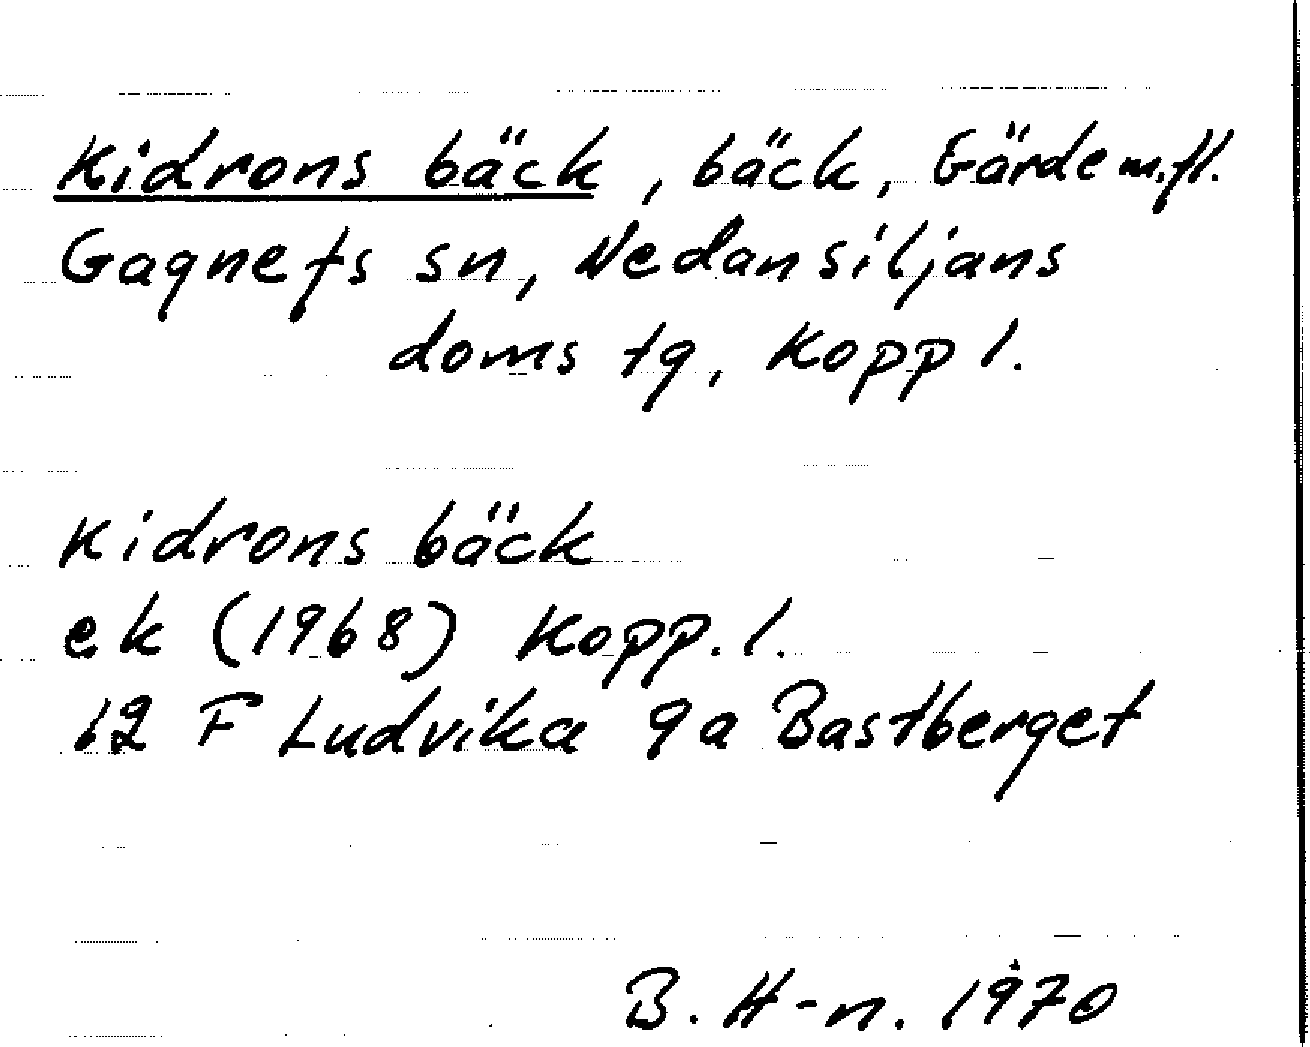 Kidrons bäck, bäck, Gärde m.fl.
Gagnefs sn, Nedansiljans
doms tg, Kopp l.
Kidrons bäck
ek (1968) Kopp. l.
12 F Ludvika 9a Bastberget
B. H-n. 1970